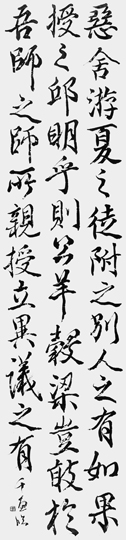 惡舍游夏之徒附之別人之有如果
授之邱明乎則公羊穀梁豈敢於
吾師之師所親授立異議之有